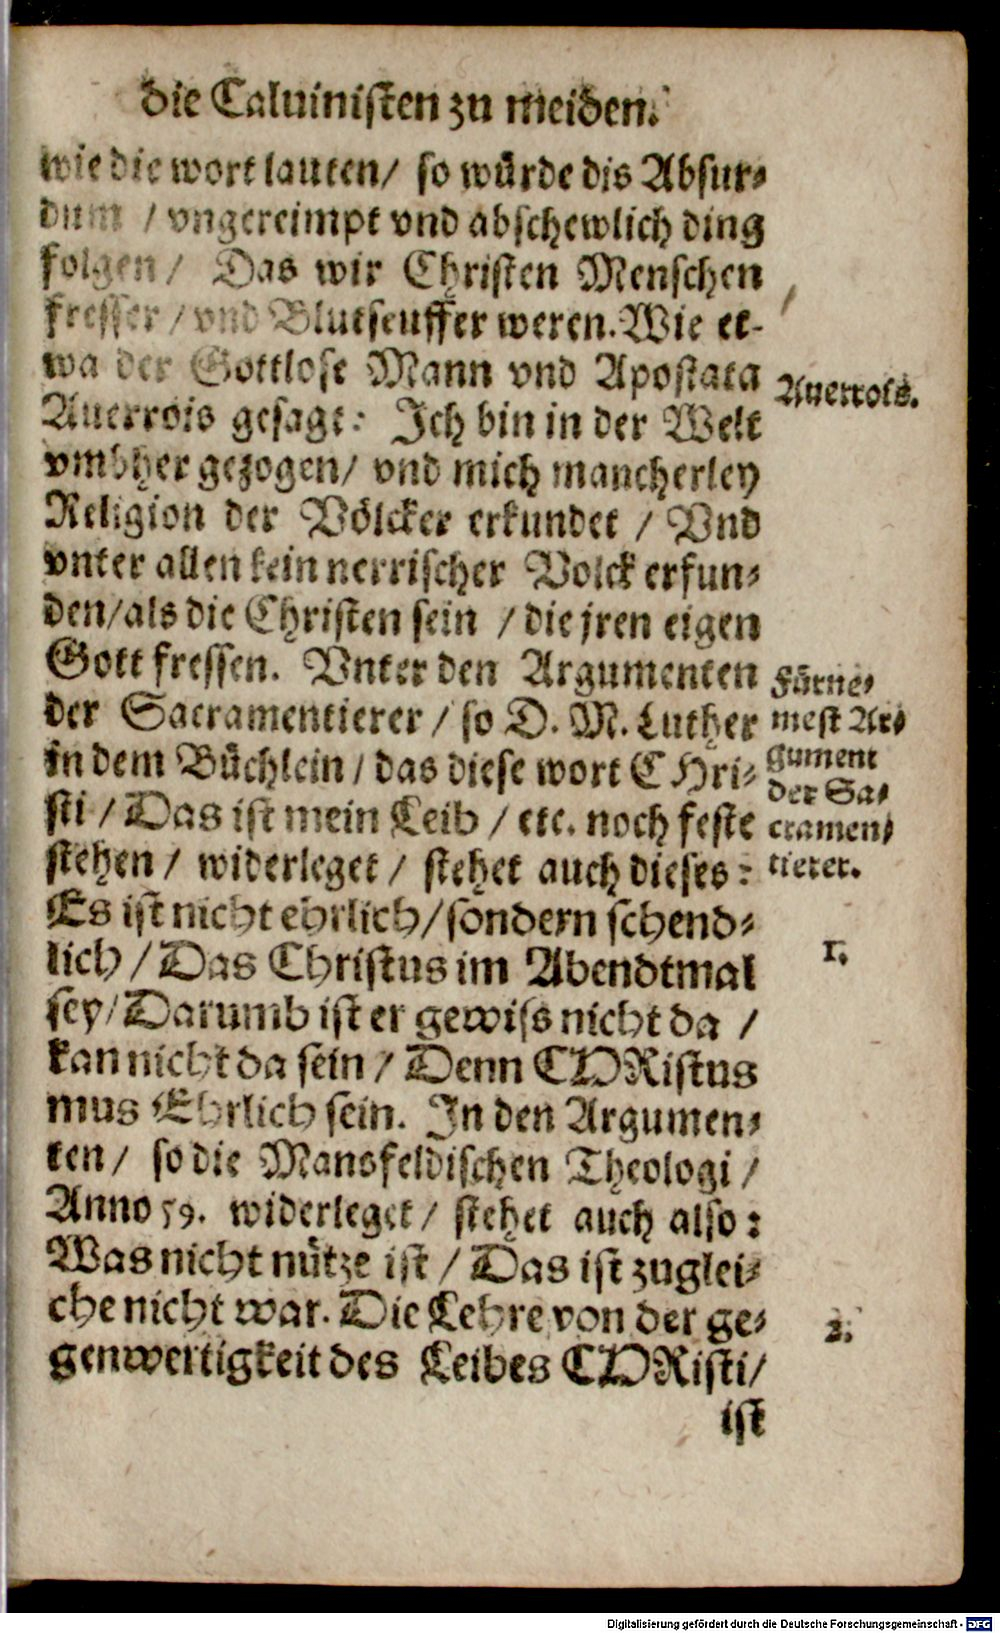 die Caluinisten zu meiden.
wie die wort lauten/ so würde dis Absur-
dum / vngereimpt vnd abschewlich ding
folgen/ Das wir Christen Menschen
fresser / vnd Blutseuffer weren. Wie et-
wa der Gottlose Mann vnd Apostata
Auerrois gesagt: Jch bin in der Welt
vmbher gezogen/ vnd mich mancherley
Religion der Völcker erkundet / Vnd
vnter allen kein nerrischer Volck erfun-
den/als die Christen sein / die jren eigen
Gott fressen. Vnter den Argumenten
der Sacramentierer / so D. M. Luther
in dem Büchlein / das diese wort CHri-
sti / Das ist mein Leib / etc. noch feste
stehen / widerleget / stehet auch dieses:
Es ist nicht ehrlich/sondern schend-
lich / Das Christus im Abendtmal
sey/Darumb ist er gewiss nicht da /
kan nicht da sein / Denn CHRistus
mus Ehrlich sein. Jn den Argumen-
ten / so die Mansfeldischen Theologi /
Anno 59. widerleget / stehet auch also:
Was nicht nütze ist / Das ist zuglei-
che nicht war. Die Lehre von der ge-
genwertigkeit des Leibes CHRisti/
ist
Auerrois.
Fürne-
mest Ar-
gument
der Sa-
cramen-
tierer.
1.
2.
Digitalisierung gefördert durch die Deutsche Forschungsgemeinschaft - DFG